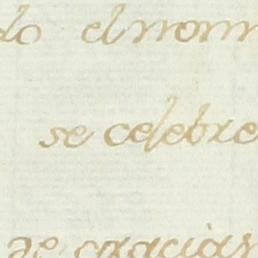 do el mom
se celebre
de gracias